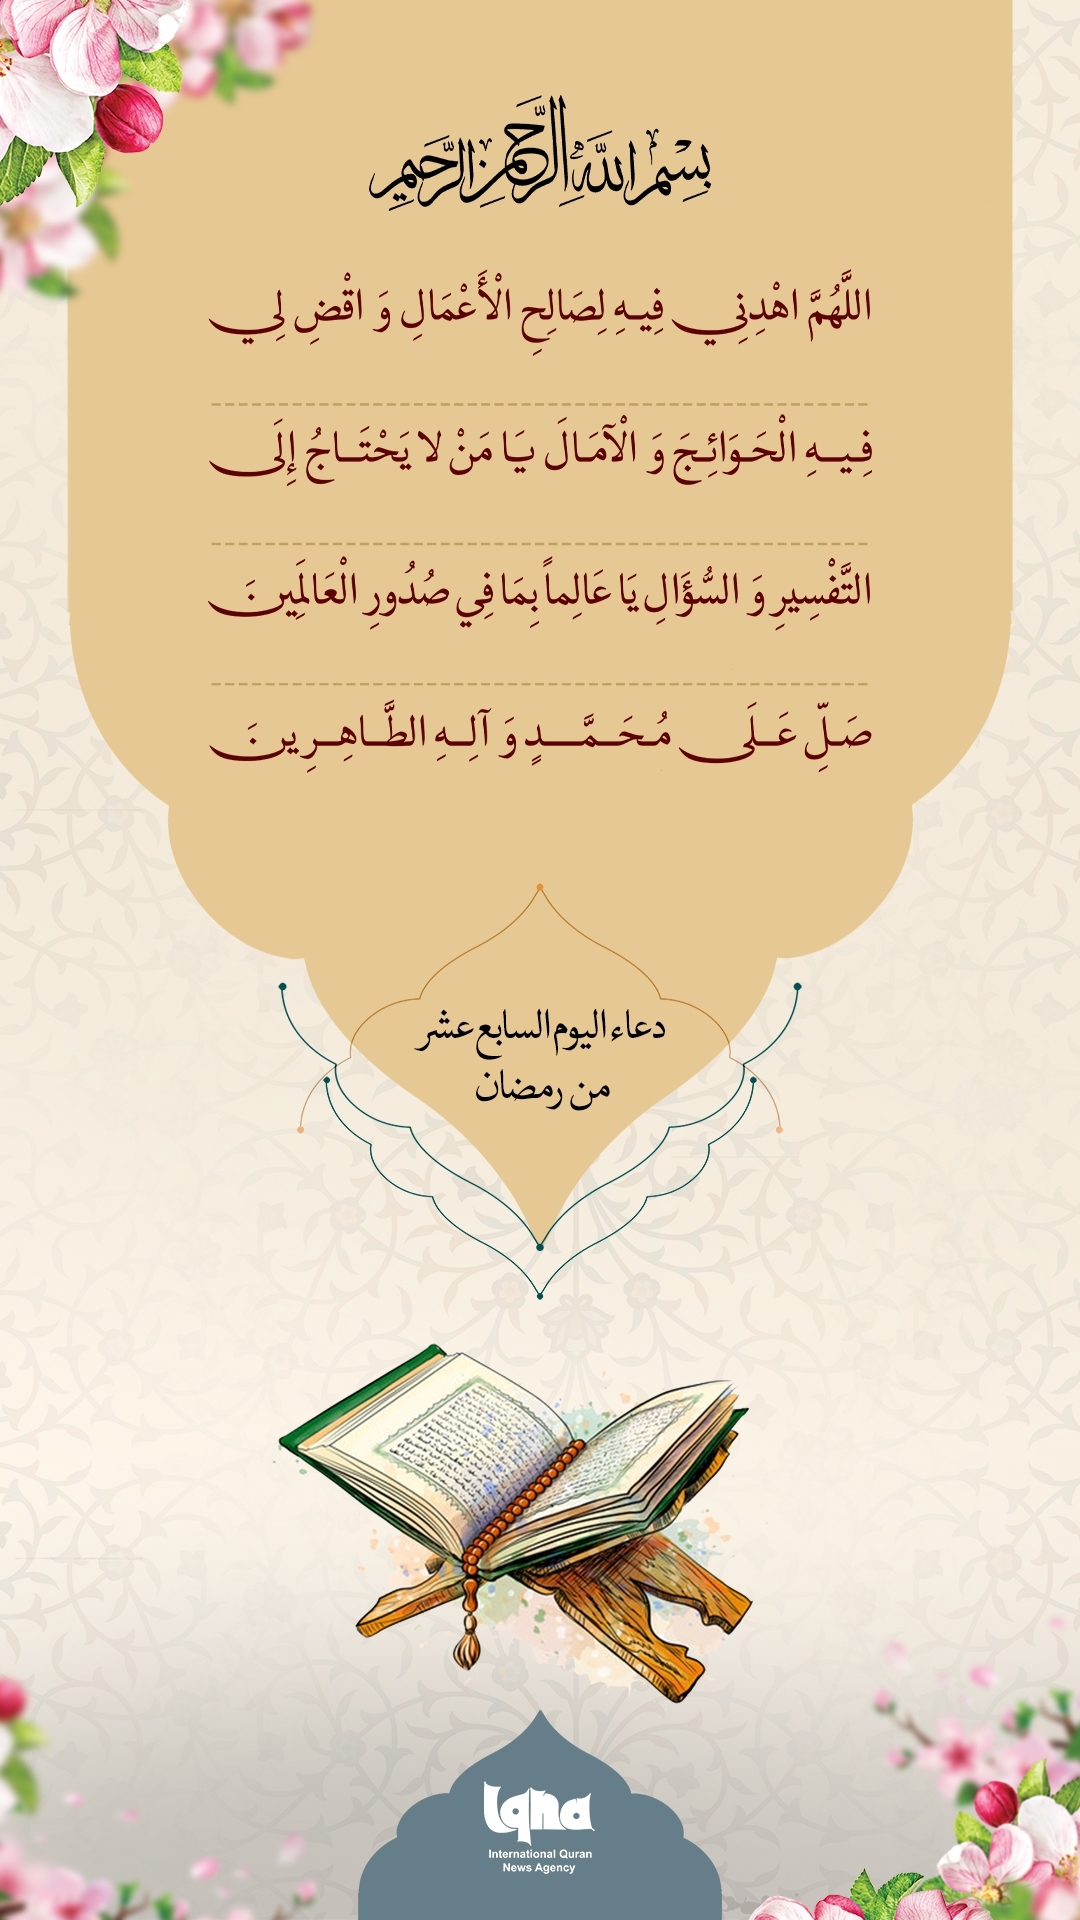 بِسْمِ اللَّهِ الرَّحْمنِ الرَّحِيمِ
اللَّهُمَّ اهْدِنِي فِيهِ لِصَالِحِ الْأَعْمَالِ وَ اقْضِ لِي
فِيهِ الْحَوَائِجَ وَ الْآمَالَ يَا مَنْ لا يَحْتَاجُ إِلَى
التَّفْسِيرِ وَ السُّؤَالِ يَا عَالِماً بِمَا فِي صُدُورِ الْعَالَمِينَ
صَلِّ عَلَى مُحَمَّدٍ وَ آلِهِ الطَّاهِرِينَ
دعاء اليوم السابع عشر
من رمضان
Iqna
International Quran
News Agency